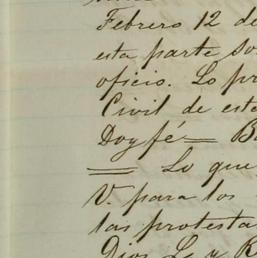 Febrero 12 de
esta parte so
oficio. Lo pr
Civil de est
Doy fé = B
= Lo que
V. para los
las protesta
Dios, Le y R